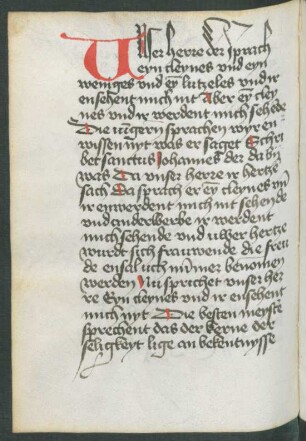 Unser herze der sprach
eyn cleynes vnd eyn
weniges vnd eỹ lutzeles vnd ir
ensehent mich nit Aber eỹ cley
nes vnd ir werdent mich sehẽde
Die iũgern sprachen wyr en
wissen nyt was er saget Schri
bet sanctus Johannes der da by
was Da vnser herre ir hertze
sach Da sprach er eỹ cleynes vñ
ir enwerdent mich nit sehende
vnd anderwerbe ir werdent
mich sehende vnd uwer hertze
wurdt sich frauwende die freu
de ensal uch nũmer benomen
werden Nu sprichet vnser her
re Eyn cleynes vnd ir ensehent
mich nyt Die besten meyster
sprechent das der kerne der
seligkeyt lige an bekentnysse